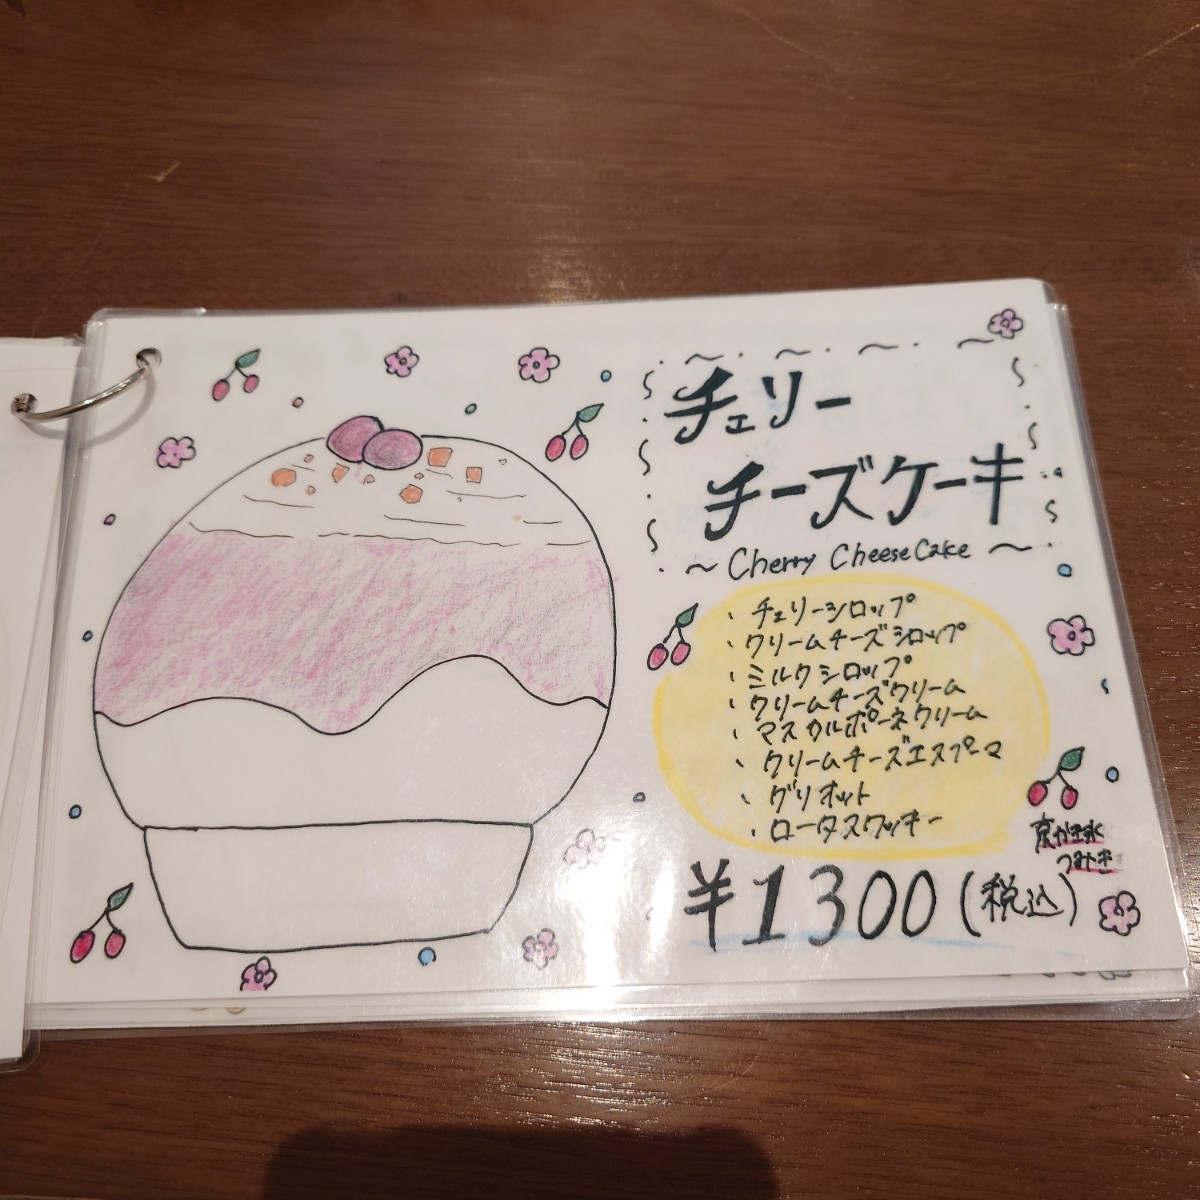 チェリー
チーズケーキ
〜 Cherry CheeseCake 〜
、チェリーシロップ
、クリームチーズシロップ
、ミルクシロップ
、クリームチーズクリーム
、マスカルポーネクリーム
、クリームチーズエスプーマ
、グリオット
、ロータスクッキー
京かき氷
つみき
¥1300(税込)